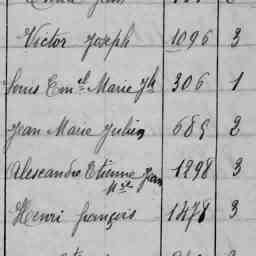 Victor Joseph 1096 3
Louis Em^el Marie J^h 306 1
Jean Marie Julien 689 2
Alescandre Etienne Jean 1298 3
M^ie
Henri françois 1478 3